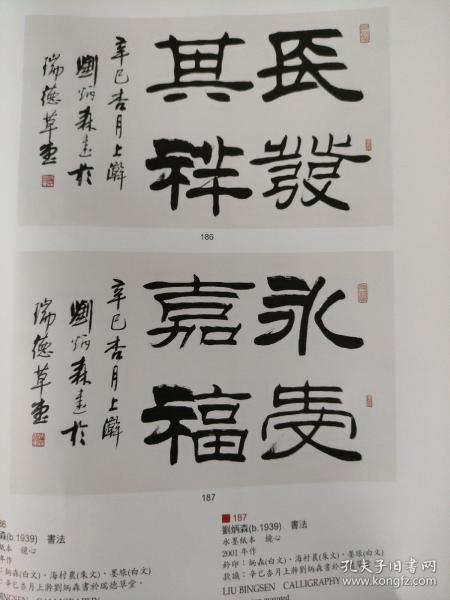 長發
其祥
辛巳杏月上澣
劉炳森書於
瑞德草堂
186
永受
嘉福
辛巳杏月上澣
劉炳森書於
瑞德草堂
187
86
森(b.1939) 書法
紙本 鏡心
年作
：炳森(白文)、海村農(朱文)、墨緣(白文)
：辛巳杏月上澣劉炳森書於瑞德草堂。
187
劉炳森(b.1939) 書法
水墨紙本 鏡心
2001 年作
鈐印：炳森(白文)、海村農(朱文)、墨緣(白文)
款識：辛巳杏月上澣劉炳森書於
LIU BINGSEN CALLIGRAPHY
孔夫子旧书网